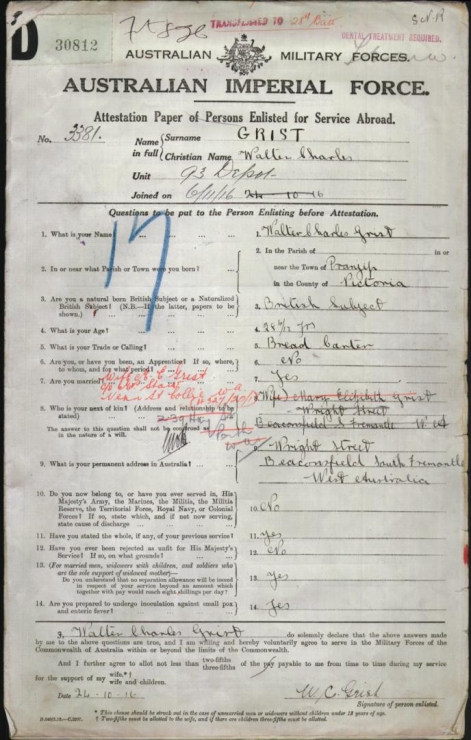 D
30812
TRANSFERRED TO 28th Batt
DENTAL TREATMENT REQUIRED.
AUSTRALIAN MILITARY FORCES.
AUSTRALIAN IMPERIAL FORCE.
Attestation Paper of Persons Enlisted for Service Abroad.
No. 3381.
Name in full
Surname GRIST
Christian Name Walter Charles
Unit 93 Depot
Joined on 6/11/16 24-10-16
Questions to be put to the Person Enlisting before Attestation.
1. What is your Name? 1. Walter Charles Grist
2. In or near what Parish or Town were you born? 2. In the Parish of in or
near the Town of
in the County of Victoria
3. Are you a natural born British Subject or a Naturalized British Subject? (N.B.—If the latter, papers to be shown.) 3. British Subject
4. What is your Age? 4. 28
5. What is your Trade or Calling? 5. Bread Carter
6. Are you, or have you been, an Apprentice? If so, where, to whom, and for what period? 6. No
7. Are you married? 7. Yes
8. Who is your next of kin? (Address and relationship to be stated) 8. Wife Mary Elizabeth Grist
The answer to this question shall not be construed as in the nature of a will.
Wright Street
Beaconsfield S Fremantle W A
9. What is your permanent address in Australia? 9. Wright Street
Beaconsfield South Fremantle
West Australia
10. Do you now belong to, or have you ever served in, His Majesty's Army, the Marines, the Militia, the Militia Reserve, the Territorial Force, Royal Navy, or Colonial Forces? If so, state which, and if not now serving, state cause of discharge 10. No
11. Have you stated the whole, if any, of your previous service? 11. Yes
12. Have you ever been rejected as unfit for His Majesty's Service? If so, on what grounds? 12. No
13. (For married men, widowers with children, and soldiers who are the sole support of widowed mother)—
Do you understand that no separation allowance will be issued in respect of your service beyond an amount which together with pay would reach eight shillings per day? 13. Yes
14. Are you prepared to undergo inoculation against small pox and enteric fever? 14. Yes
I, Walter Charles Grist do solemnly declare that the above answers made
by me to the above questions are true, and I am willing and hereby voluntarily agree to serve in the Military Forces of the
Commonwealth of Australia within or beyond the limits of the Commonwealth.
And I further agree to allot not less than two-fifths three-fifths of the pay payable to me from time to time during my service
for the support of my wife.* † wife and children.
Date 24-10-16 W. C. Grist
Signature of person enlisted.
* This clause should be struck out in the case of unmarried men or widowers without children under 18 years of age.
† Two-fifths must be allotted to the wife, and if there are children three-fifths must be allotted.